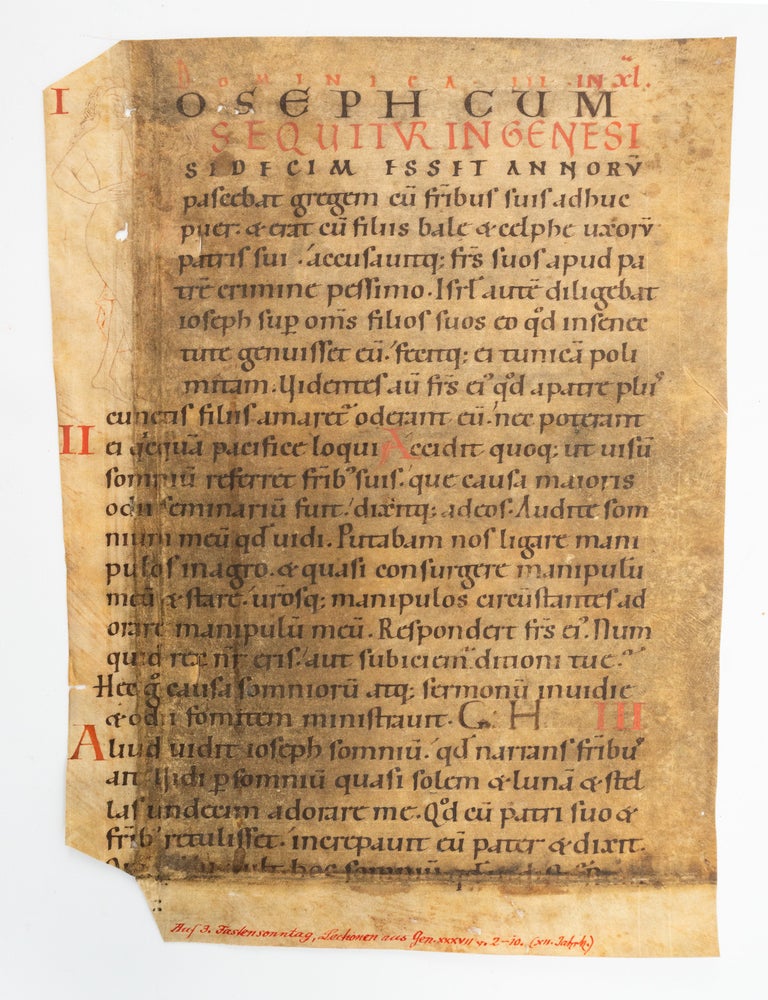 DOMINICA III IN XL.
I
OSEPH CUM
SEQUITVR IN GENESI
SEDECIM ESSET ANNORŪ
pascebat gregem cū fr̄ibus suis adhuc
puer· & erat cū filiis bale & zelphe uxorū
patris sui· accusauitq; fr̄s suos apud pa
trē crimine pessimo· Isrl̄ autē diligebat
ioseph sup om̄s filios suos eo qd̄ in senec
tute genuisset eū· fecitq; ei tunicā poli
mitam. Uidentes aū fr̄s ei᾽ qd̄ a patre plus᾽
cunctis filiis amaret᾽ oderant eū· nec poterant
II
ei qͥcquā pacifice loqui Accidit quoq; ut uisū
somniū referret fr̄ib᾽ suis· que causa maioris
odii seminariū fuit· dixitq; ad eos· Audite som
nium meū qd̄ uidi. Putabam nos ligare mani
pulos in agro· & quasi consurgere manipulū
meū & stare· ur̄osq; manipulos circūstantes ad
orare manipulū meū. Respondert̄ fr̄s ei᾽· Num
quid rex nr̄ eris· aut subiciem᾽ ditioni tue·
Hec g̊ causa somniorū atq; sermonū inuidie
& odii fomitem ministrauit. G· H III
Aliud uidit ioseph somniū· qd̄ narrans fr̄ibu᾽
ait· Uidi p somniū quasi solem & lunā & stel
las undecim adorare me· Qd̄ cū patri suo &
fr̄ib᾽ retulisset· increpauit eū pater & dixit·
hoc somniū
Auf 3. Fastensonntag, Lectionen aus Gen. XXXVII v. 2–10. (XII. Jahrh.)